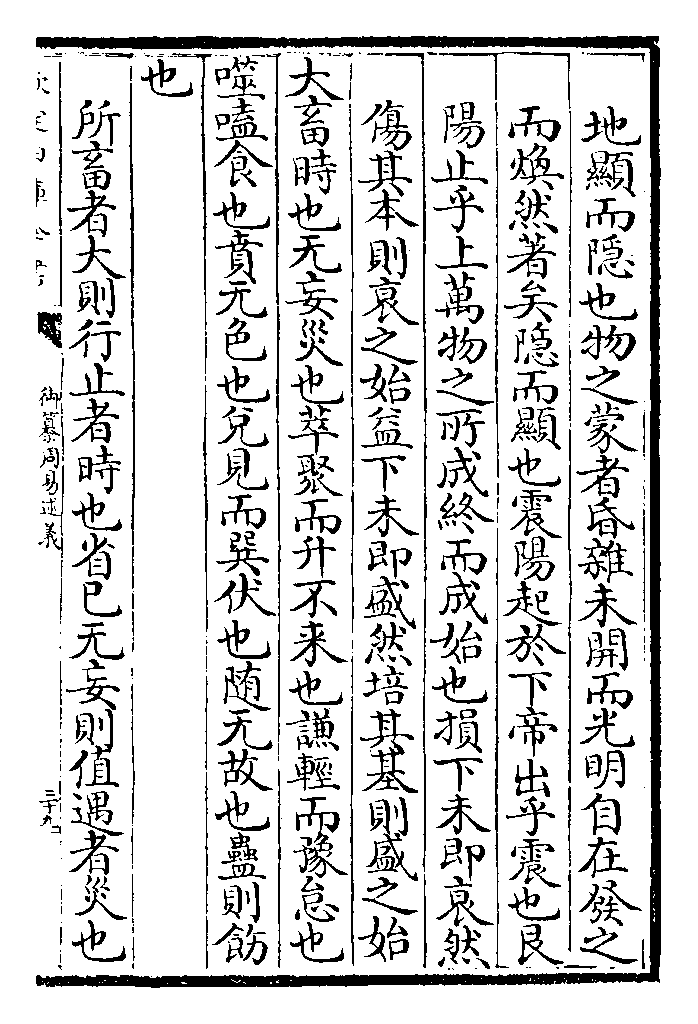 地顯而隱也物之蒙者昏雜未開而光明自在發之
而煥然著矣隱而顯也震陽起於下帝出乎震也艮
陽止乎上萬物之所成終而成始也損下未即衰然
傷其本則衰之始益下未即盛然培其基則盛之始
大畜時也无妄災也萃聚而升不来也謙輕而豫怠也
噬嗑食也賁无色也兌見而巽伏也随无故也蠱則飭
也
所畜者大則行止者時也省已无妄則值遇者災也
欽定四庫全書
御纂周易述義
三十九